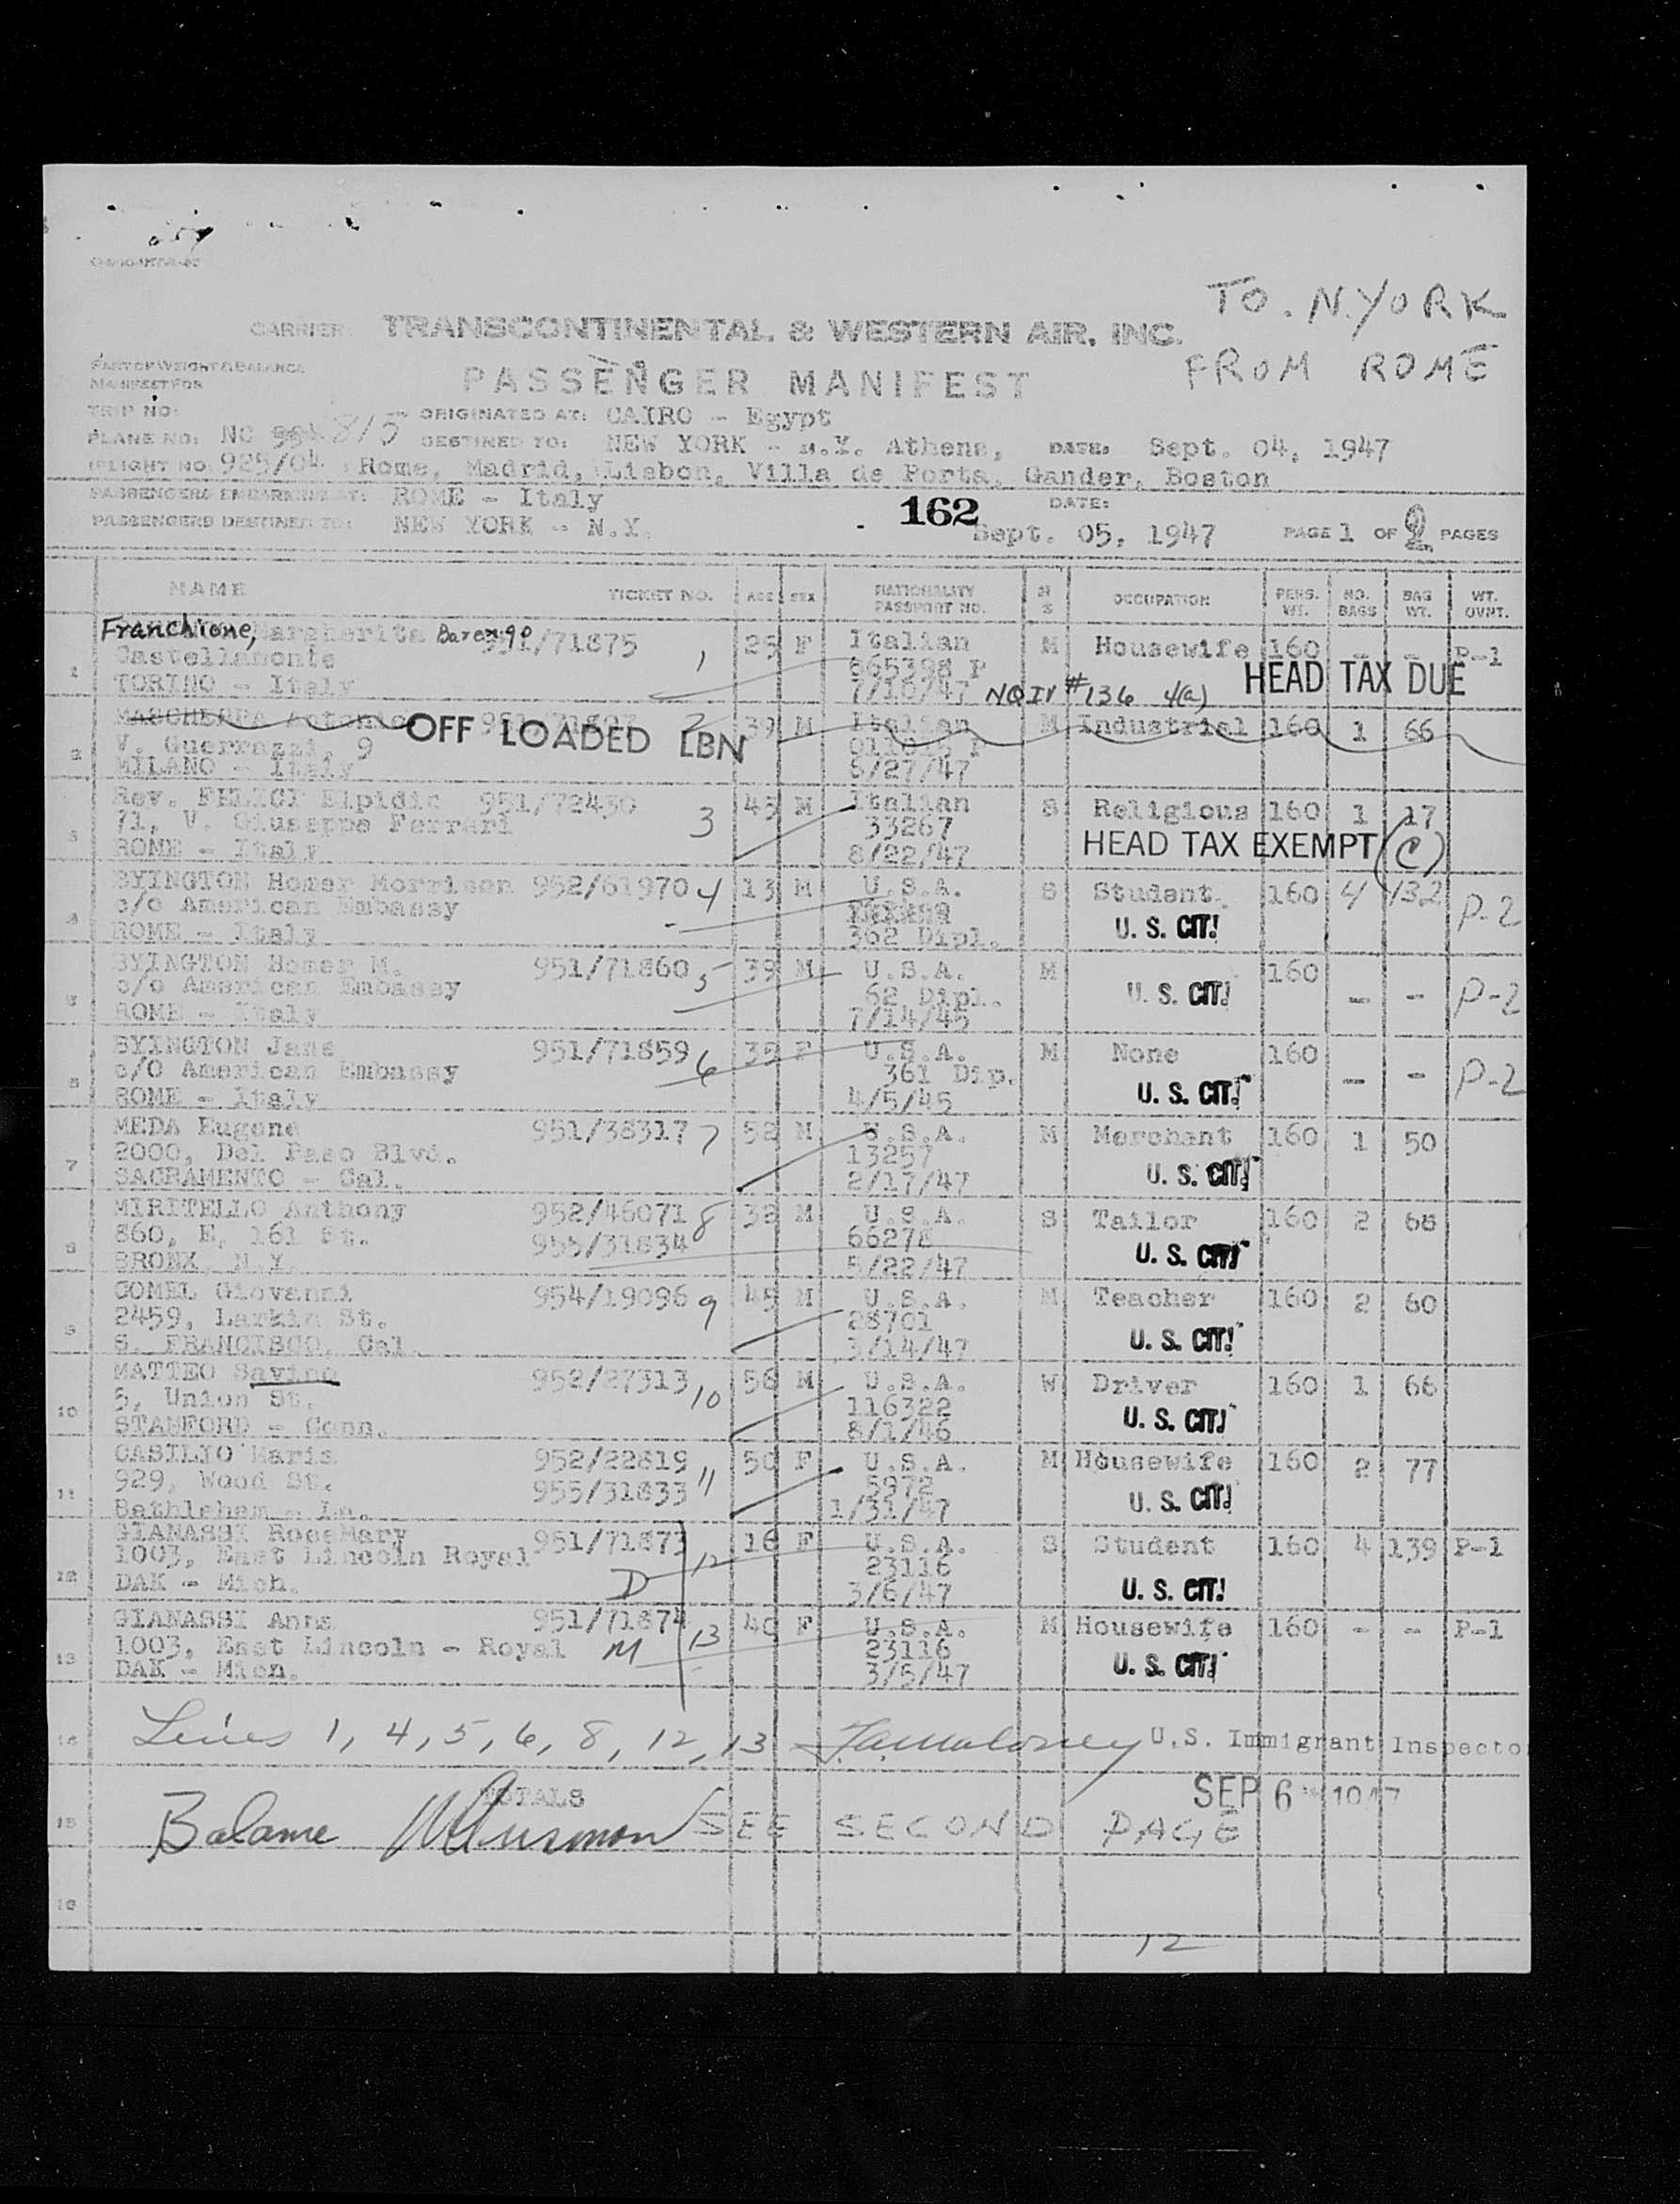 TO. N.YORK
CARRIER: TRANSCONTINENTAL & WESTERN AIR, INC.
FROM ROME
PART OF WEIGHT & BALANCE
MANIFEST FOR
PASSENGER MANIFEST
TRIP NO: ORIGINATED AT: CAIRO - Egypt
PLANE NO: NC 815 DESTINED TO: NEW YORK - N.Y. Athens, DATE: Sept. 04, 1947
FLIGHT NO. 925/04 Rome, Madrid, Lisbon, Villa de Porta, Gander, Boston
PASSENGERS EMBARKING AT: ROME - Italy
PASSENGERS DESTINED TO: NEW YORK - N.Y. 162 DATE: Sept. 05, 1947 PAGE 1 OF 2 PAGES
NAME TICKET NO. AGE SEX NATIONALITY PASSPORT NO. M S OCCUPATION PERS. WT. NO. BAGS BAG WT. WT. OVNT.
1 Franchione, Margherita Barengo 951/71875 1 25 F Italian M Housewife 160 - - P-1
Castellamonte 665398 P
TORINO - Italy 7/10/47 NQIV #136 4(a) HEAD TAX DUE
2 MASCHERPA Antonio OFF LOADED LBN 2 39 M Italian M Industrial 160 1 66
V. Guerrazzi, 9
MILANO - Italy 8/27/47
3 Rev. FELICI Elpidio 951/72430 3 45 M Italian S Religious 160 1 17
71, V. Giuseppe Ferrari 33267
ROME - Italy 8/22/47 HEAD TAX EXEMPT (C)
4 BYINGTON Homer Morrison 952/61970 4 13 M U.S.A. S Student 160 4 132 P-2
c/o American Embassy
ROME - Italy 362 Dipl. U. S. CIT!
5 BYINGTON Homer M. 951/71860 5 39 M U.S.A. M 160 - - P-2
c/o American Embassy 62 Dipl. U. S. CIT!
ROME - Italy 7/14/45
6 BYINGTON Jane 951/71859 6 35 F U.S.A. M None 160 - - P-2
c/o American Embassy 361 Dip.
ROME - Italy 4/5/45 U. S. CIT!
7 MEDA Eugene 951/38317 7 52 M U.S.A. M Merchant 160 1 50
2000, Del Paso Blvd. 13257
SACRAMENTO - Cal. 2/17/47 U. S. CIT!
8 MIRITELLO Anthony 952/46071 8 32 M U.S.A. S Tailor 160 2 68
860, E, 161 St. 955/31834 66278
BRONX, N.Y. 5/22/47 U. S. CIT!
9 GOMEL Giovanni 954/19096 9 45 M U.S.A. M Teacher 160 2 60
2459, Larkin St. 28701
S. FRANCISCO, Cal. 3/14/47 U. S. CIT!
10 MATTEO Savino 952/27313 10 56 M U.S.A. W Driver 160 1 66
5, Union St. 116322
STAMFORD - Conn. 8/1/46 U. S. CIT!
11 CASILIO Maria 952/22819 11 50 F U.S.A. M Housewife 160 2 77
929, Wood St. 955/31833 5972
Bethlehem - 1/31/47 U. S. CIT!
12 GIANASSI RoseMary 951/71873 12 16 F U.S.A. S Student 160 4 139 P-1
1003, East Lincoln Royal 23116
DAK - Mich. D 3/6/47 U. S. CIT!
13 GIANASSI Anna 951/71874 13 40 F U.S.A. M Housewife 160 - - P-1
1003, East Lincoln - Royal M 23116
DAK - Mich. 3/5/47 U. S. CIT!
14 Lines 1, 4, 5, 6, 8, 12, 13 U.S. Immigrant Inspecto
TOTALS SEP 6 1947
15 Balance SEE SECOND PAGE
16
12